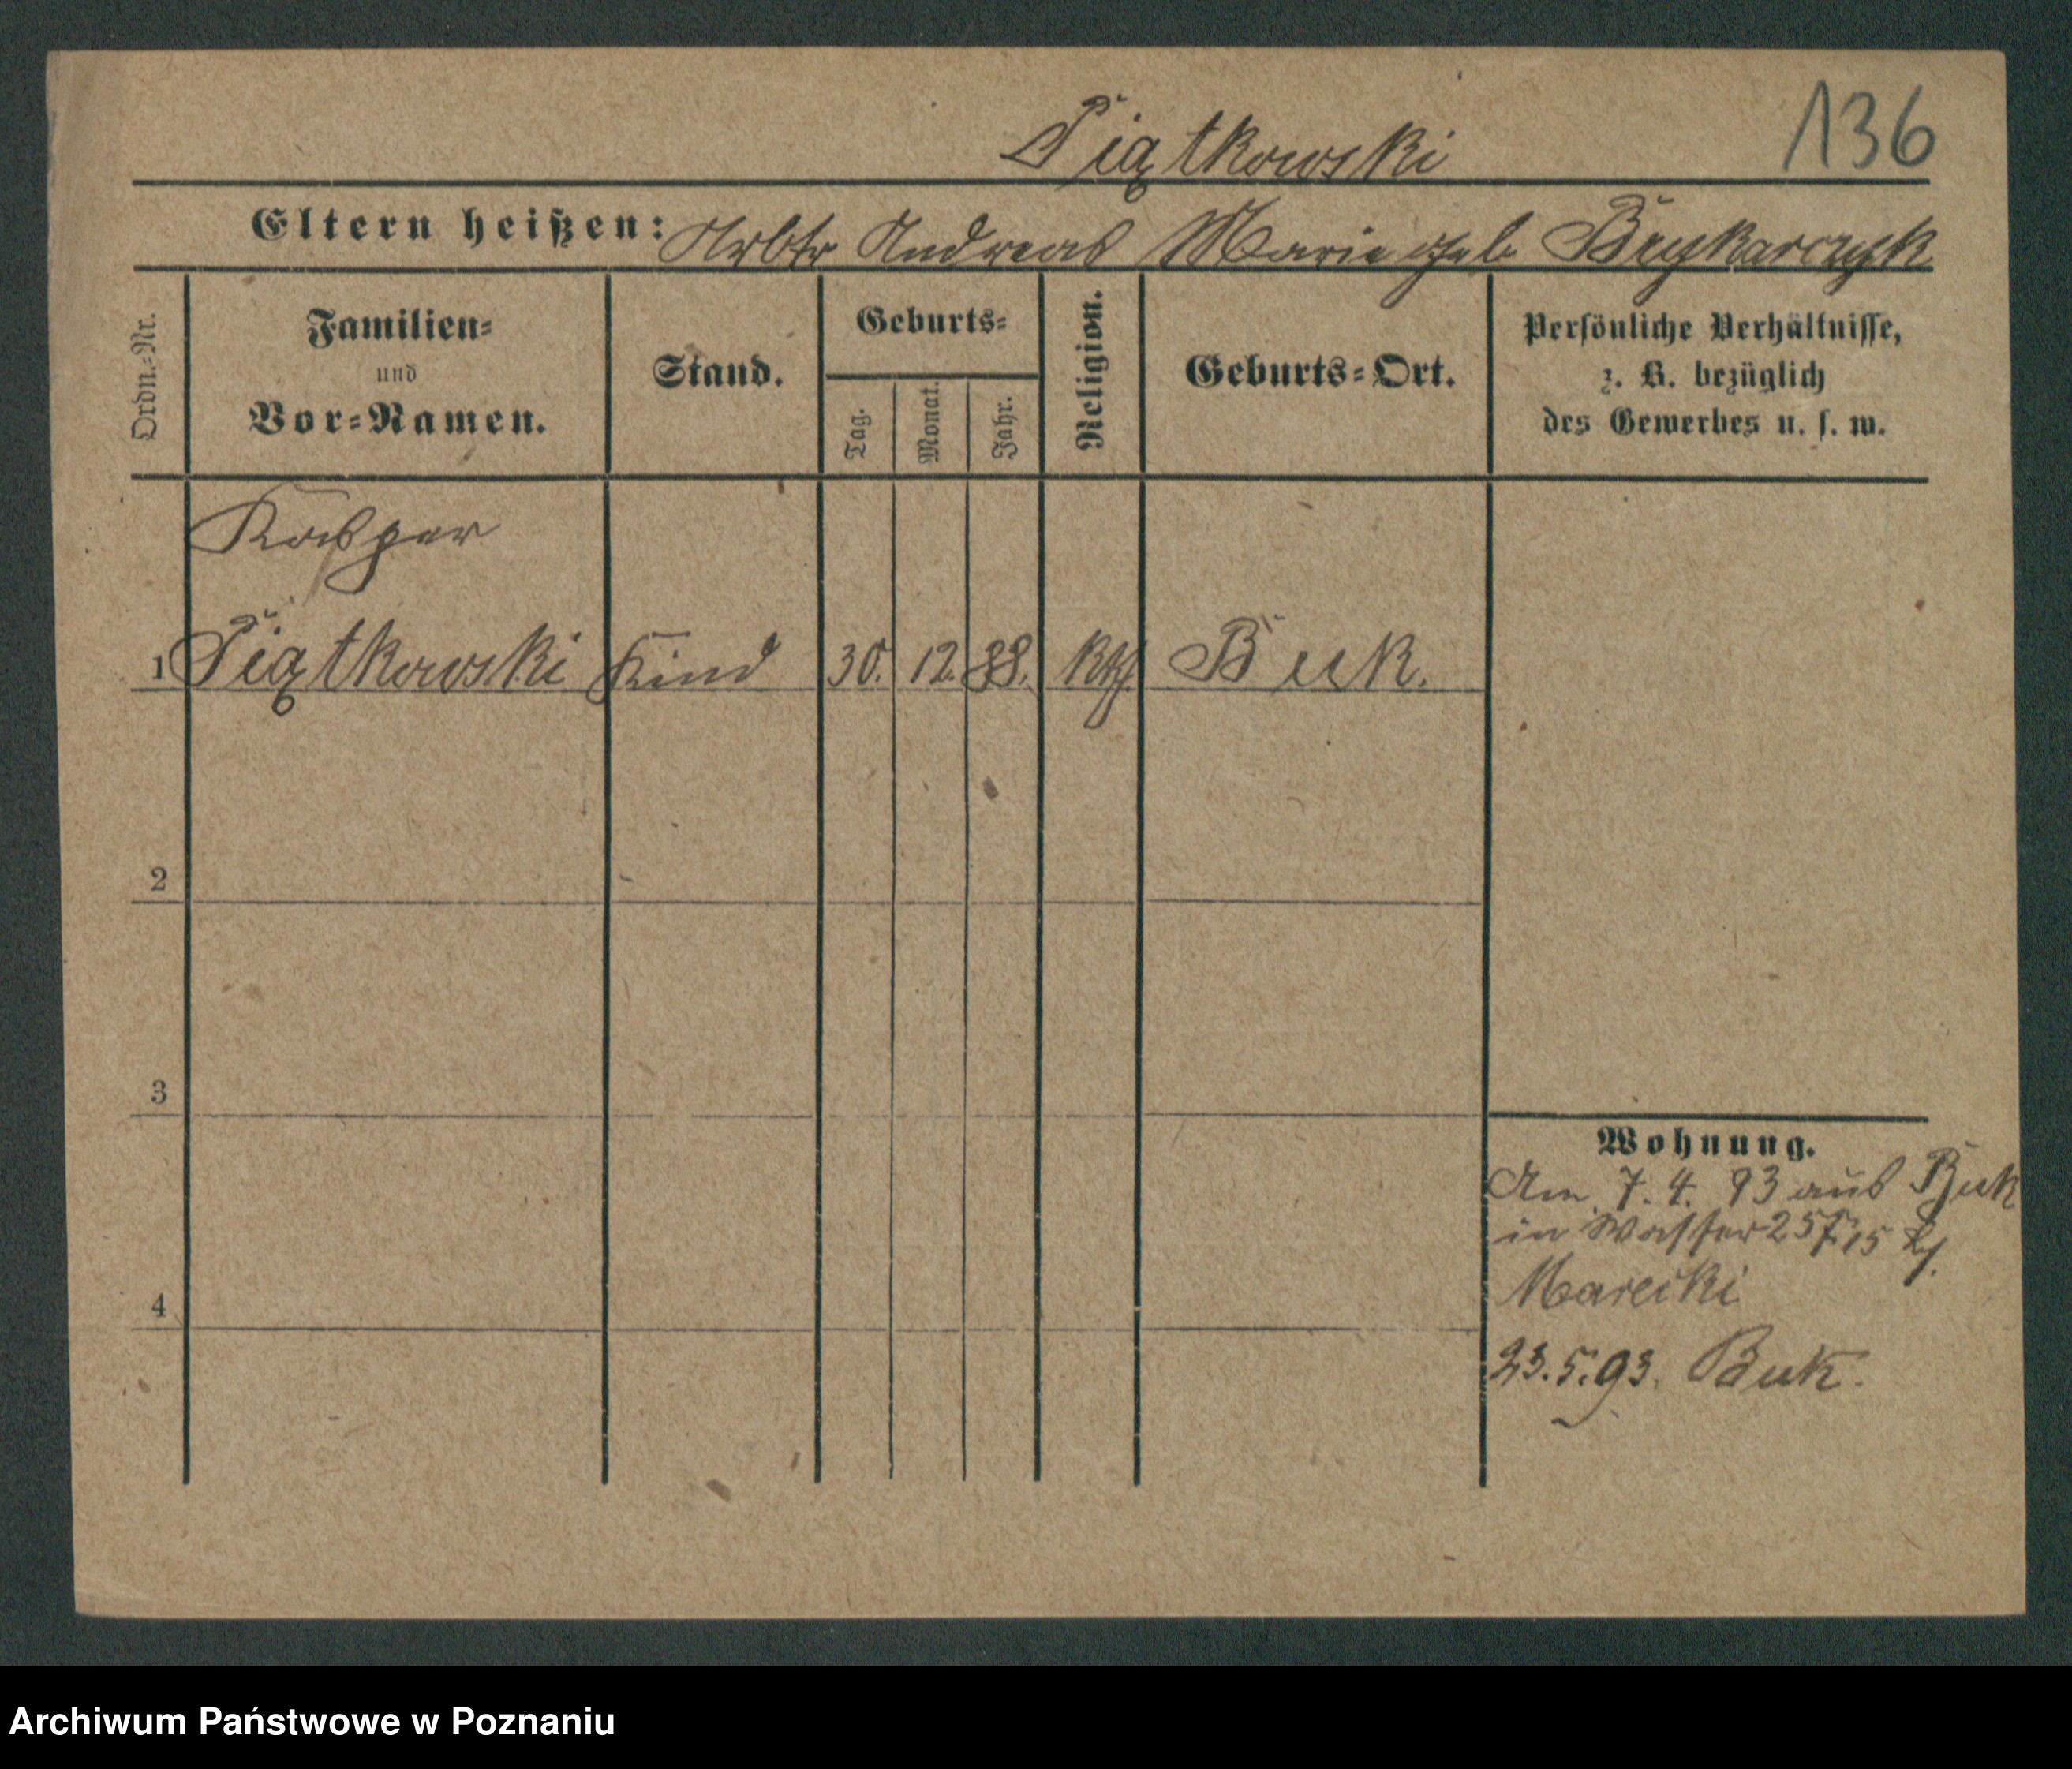 Piątkowski
136
Eltern heißen: Arbtr Andreas Marie geb Brykarczyk
Ordn.-Nr.
Familien-
und
Vor-Namen.
Stand.
Geburts-
Tag.
Monat.
Jahr.
Religion.
Geburts-Ort.
Persönliche Verhältnisse,
z. B. bezüglich
des Gewerbes u. s. w.
Kasper
1 Piątkowski Kind 30. 12. 88. Kth. Buk.
2
3
4
Wohnung.
Am 7. 4. 93 aus Buk
in Wasser 25
Marecki
23.5.93. Buk.
Archiwum Państwowe w Poznaniu